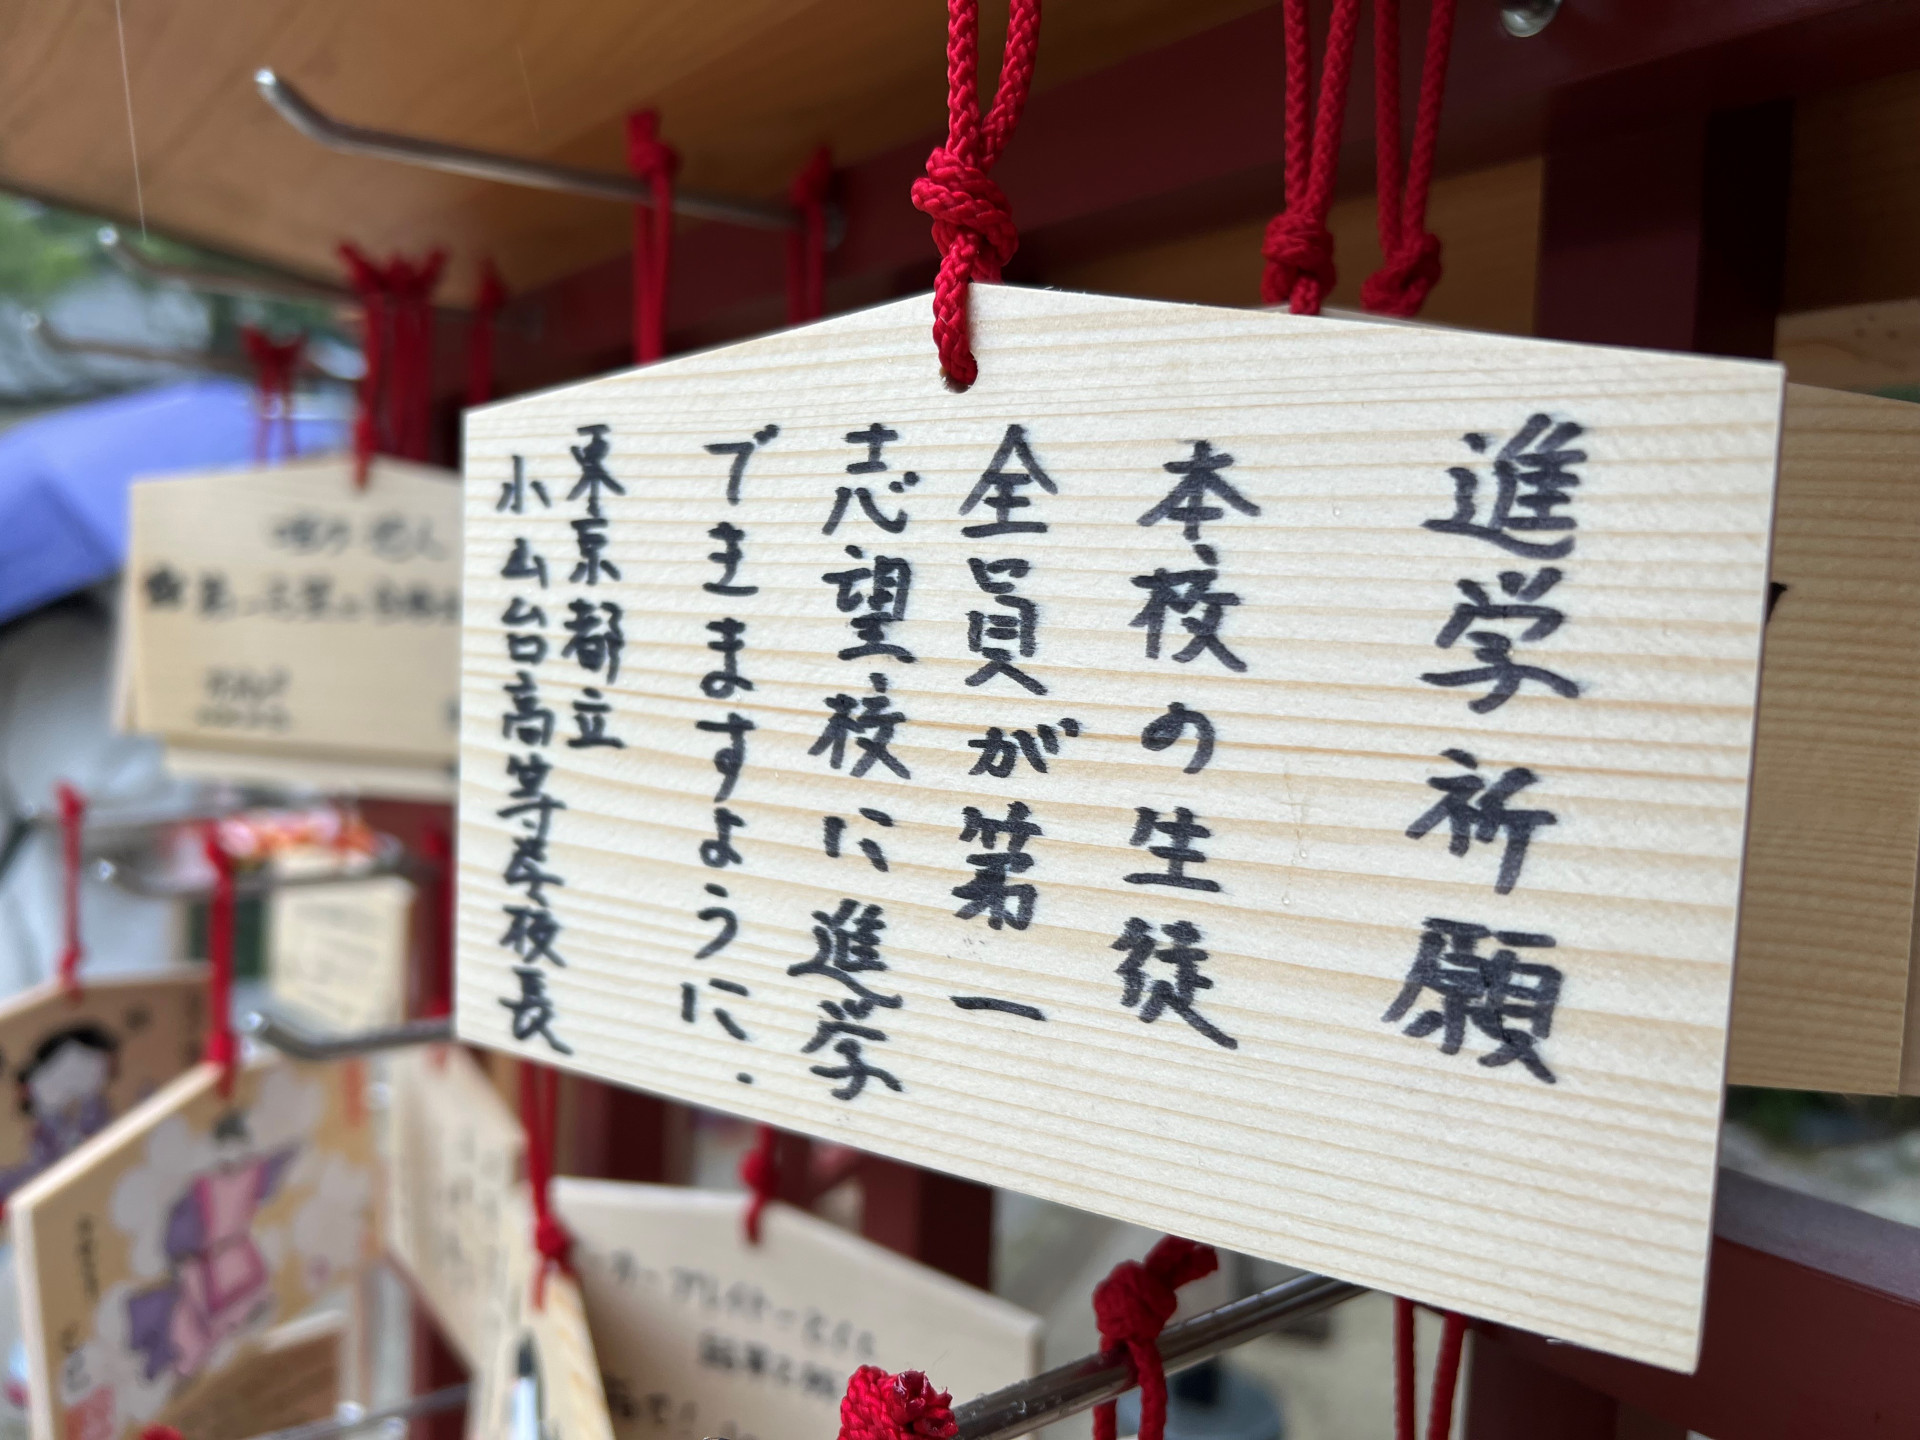 進学祈願
本校の生徒
全員が第一
志望校に進学
できますように.
東京都立
小山台高等学校長